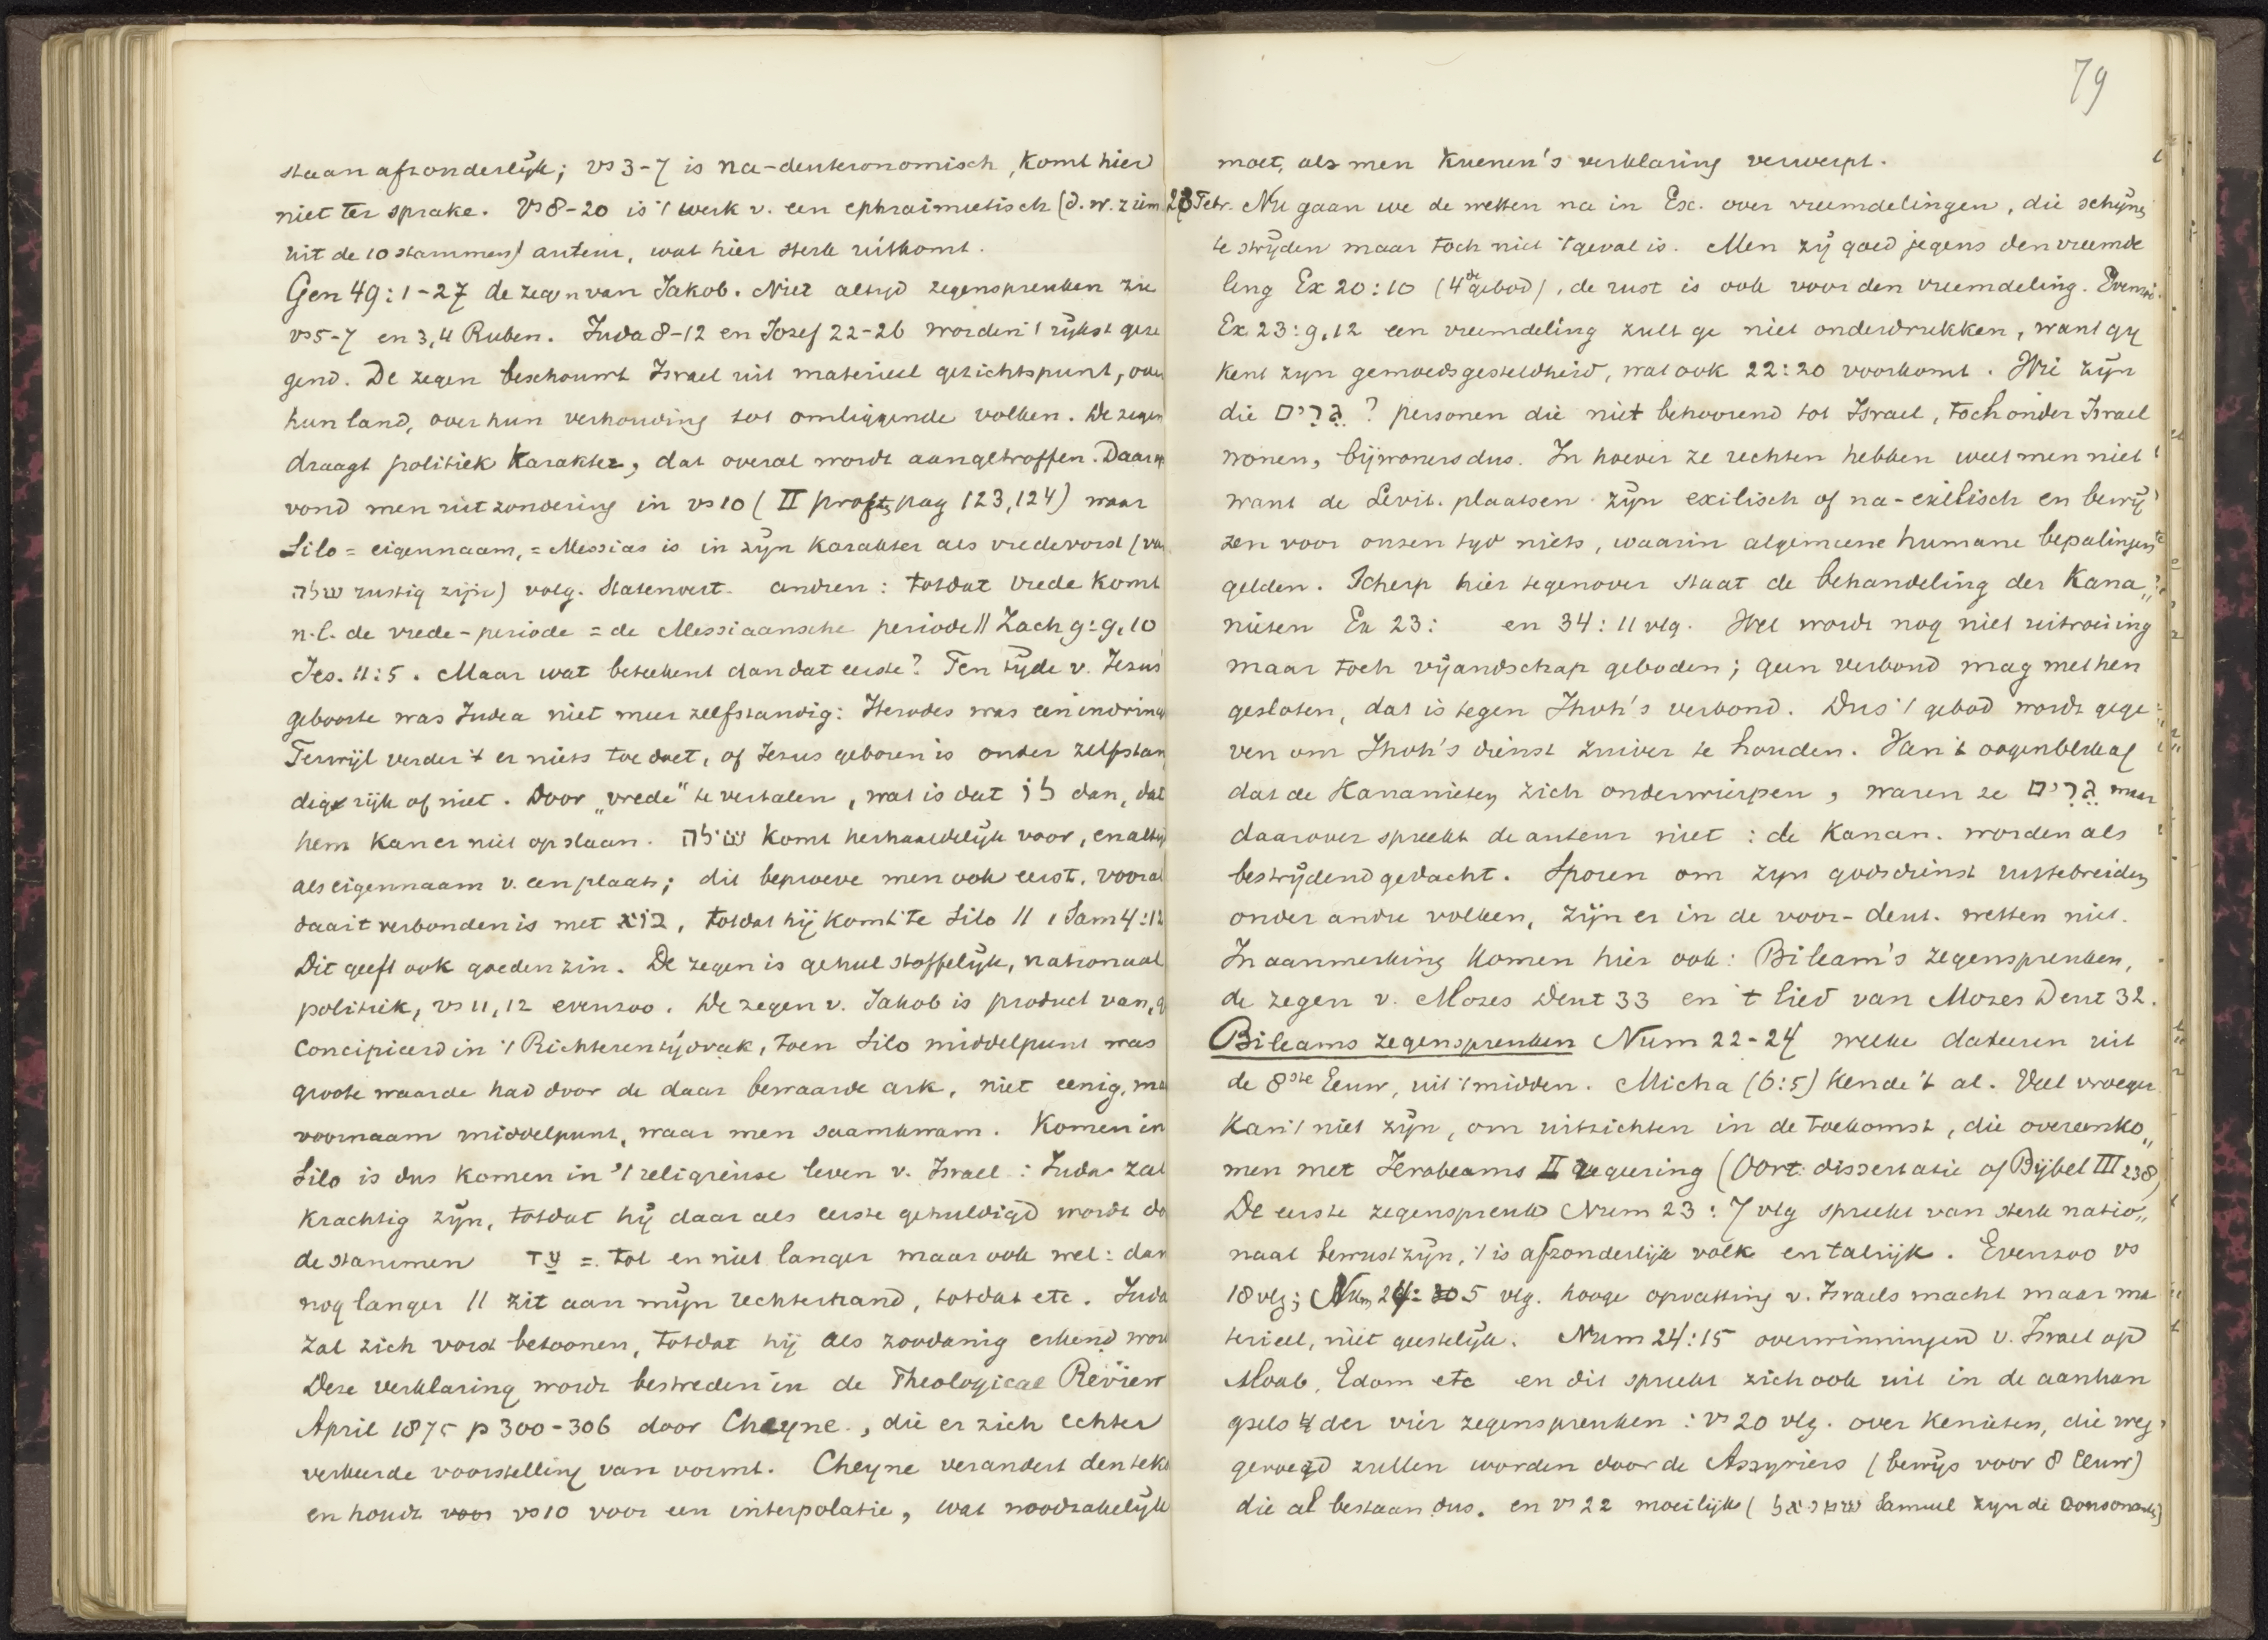 staan afzonderlijk; vs 3-7 is na-deuteronomisch, komt hier
niet ter sprake. Vs 8-20 is 't werk v. een ephraimietisch (d.w.z. iem
uit de 10 stammen) auteur, wat hier sterk uitkomt.
Gen 49:1-27 de zegen van Jakob. Niet altijd zegenspreuken zie
vs 5-7 en 3,4 Ruben. Juda 8-12 en Jozef 22-26 worden 't rijkst geze
gend. De zegen beschouwt Israel uit materieel gezichtspunt, over
hun land, over hun verhouding tot omliggende volken. De zegen
draagt politiek karakter, dat overal wordt aangetroffen. Daarop
vond men uitzondering in vs 10 (II proft, pag 123,124) waar
Silo = eigennaam, = Messias is in zijn karakter als vredevorst (van
שלה rustig zijn) volg. Statenvert. andren: totdat vrede komt
n.l. de vrede-periode = de Messiaansche periode // Zach 9:9,10
Jes. 11:5. Maar wat beteekent dan dat eerste? Ten tijde v. Jezus'
geboorte was Judea niet meer zelfstandig: Herodes was een indring
Terwijl verder 't er niets toe doet, of Jezus geboren is onder zelfstan
dig rijk of niet. Door „vrede" te vertalen, wat is dat לו dan, dat
hem kan er niet op slaan. שילה komt herhaaldelijk voor, en altijd
als eigennaam v. een plaats; dit beproeve men ook eerst. vooral
daar 't verbonden is met בוא, totdat hij komt te Silo // 1 Sam 4:12
Dit geeft ook goeden zin. De zegen is geheel stoffelijk, nationaal
politiek, vs 11,12 evenzoo. De zegen v. Jakob is product van, g
concipieerd in 't Richterentijdvak, toen Silo middelpunt was
groote waarde had door de daar bewaarde ark, niet eenig, ma
voornaam middelpunt, waar men saamkwam. Komen in
Silo is dus komen in 't religieuse leven v. Israel: Juda zal
krachtig zijn, totdat hij daar als eerste gehuldigd wordt do
de stammen עד = tot en niet langer maar ook wel: dan
nog langer // zit aan mijn rechterhand, totdat etc. Juda
zal zich vorst betoonen, totdat hij als zoodanig erkend word
Deze verklaring wordt bestreden in de Theological Review
April 1875 p 300-306 door Cheyne., die er zich echter
verkeerde voorstelling van vormt. Cheyne verandert den teks
en houdt voor vs 10 voor een interpolatie, wat noodzakelijk
79
moet, als men Kuenen's verklaring verwerpt.
28 Febr. Nu gaan we de wetten na in Ex. over vreemdelingen, die schijn
te strijden maar toch niet 't geval is. Men zij goed jegens den vreemde
ling Ex 20:10 (4de gebod), de rust is ook voor den vreemdeling. Evenzoo
Ex 23:9,12 een vreemdeling zult ge niet onderdrukken, want gij
kent zijn gemoedsgesteldheid, wat ook 22:20 voorkomt. Wie zijn
die גֵּרִים ? personen die niet behoorend tot Israel, toch onder Israel
wonen, bijwoners dus. In hoever ze rechten hebben weet men niet
want de Levit. plaatsen zijn exilisch of na-exilisch en bewij
zen voor onzen tijd niets, waarin algemeene humane bepalingen
gelden. Scherp hier tegenover staat de behandeling der Kana„
nieten Ex 23: en 34:11 vlg. Wel wordt nog niet uitroeiing
maar toch vijandschap geboden; geen verbond mag met hen
gesloten, dat is tegen Jhvh's verbond. Dus 't gebod wordt gege
ven om Jhvh's dienst zuiver te houden. Van 't oogenblik af
dat de Kananieten zich onderwierpen, waren ze גֵּרִים maar
daarover spreekt de auteur niet: de Kanan. worden als
bestrijdend gedacht. Sporen om zijn godsdienst uittebreiden
onder andre volken, zijn er in de voor-deut. wetten niet.
In aanmerking komen hier ook: Bileam's zegenspreuken,
de zegen v. Mozes Deut 33 en 't lied van Mozes Deut 32.
Bileams zegenspreuken Num 22-24 welke dateeren uit
de 8ste Eeuw, uit 't midden. Micha (6:5) kende 't al. Veel vroeger
kan 't niet zijn, om uitzichten in de toekomst, die overeenko„
men met Jerobeams II regeering (Oort: dissertatie of Bijbel III 238)
De eerste zegenspreuk Num 23:7 vlg spreekt van sterk natio„
naal bewustzijn, 't is afzonderlijk volk en talrijk. Evenzoo vs
18 vlg; Num 24: 5 vlg. hooge opvatting v. Israels macht maar ma
terieel, niet geestelijk. Num 24:15 overwinningen v. Israel op
Moab, Edom etc en dit spreekt zich ook uit in de aanhan
gsels der vier zegenspreuken: vs 20 vlg. over Kenieten, die weg
gevoerd zullen worden door de Assyriers (bewijs voor 8 Eeuw)
die al bestaan dus. en vs 22 moeilijk ( Samuel zijn de consonant)